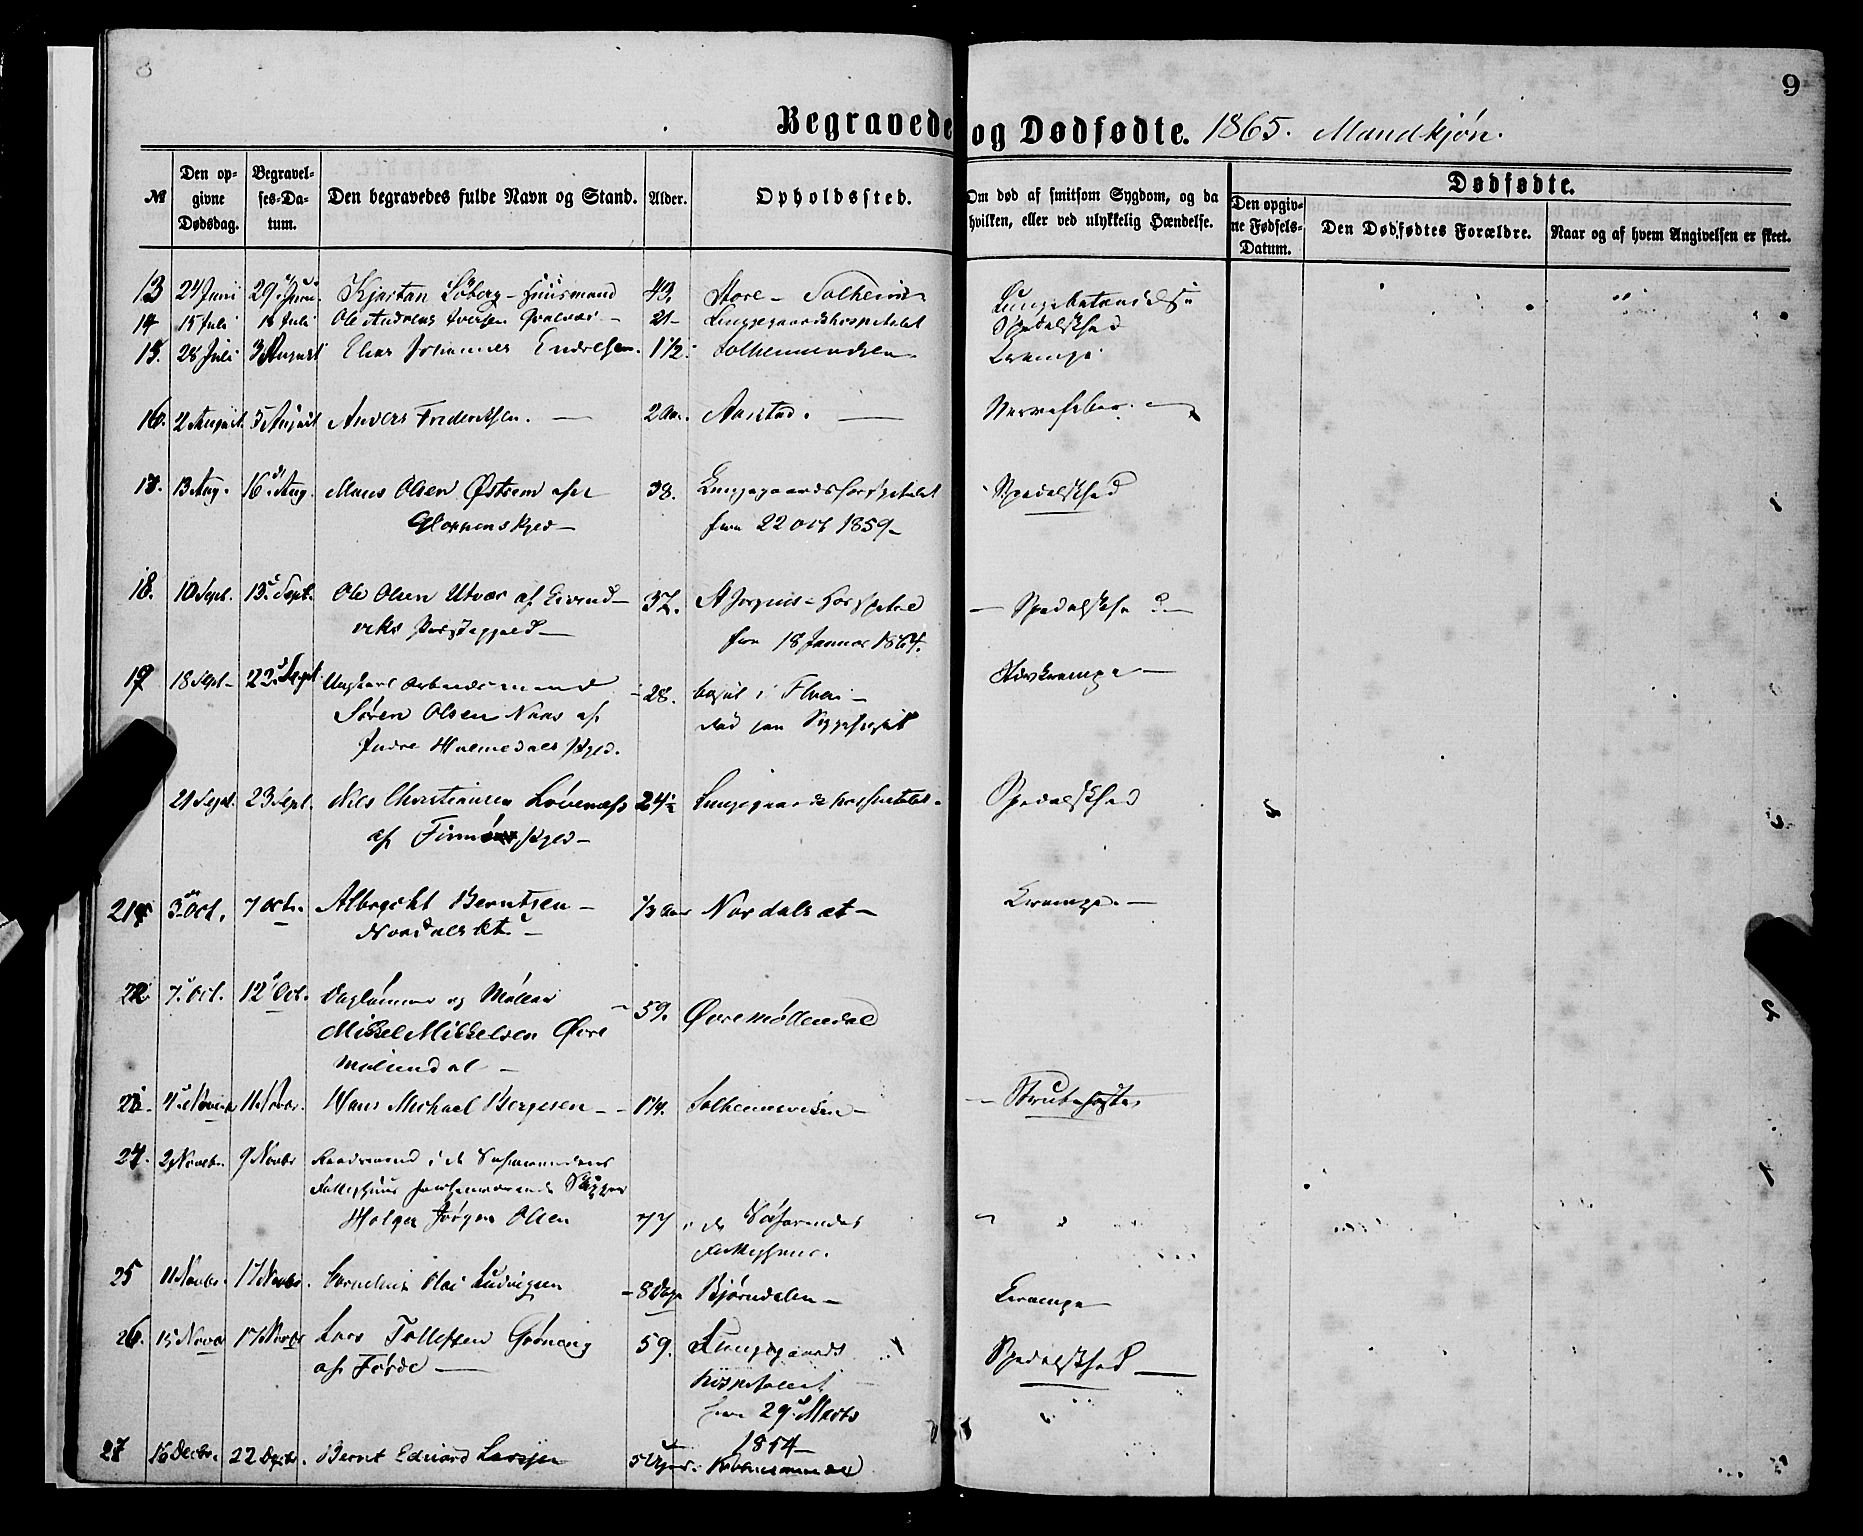 8
9
Begravede og Dødfødte. 1865. Mandkjøn.
№ Den opgivne Dødsdag. Begravelses-Datum. Den begravedes fulde Navn og Stand. Alder. Opholdssted. Om død af smitsom Sygdom, og da hvilken, eller ved ulykkelig Hændelse. Dødfødte.
Den opgivne Fødsels-Datum. Den Dødfødtes Forældre. Naar og af hvem Angivelsen er skeet.
13 24 Juni 29 Juni Kjartan Söberg - Huusmand 43. Store - Solheim Lungebetændelse
14 15 Juli 18 Juli Ole Andreas Iversen - 21 - Lungegaardshospitalet Spedalskhed
15. 28 Juli 3 August Elias Johannes Endresen. 1 1/2. Krampe
16. 2 August 5 August Anders Frederiksen. - 2 Aar. Aarstad. - Nervefeber. -
17. 13 Aug. 16 Aug. Mons Olsen Østrem af 38. Lungegaardshospitalet Spedalskhed
Gloppens Pgjed - fra 22 Oct 1859 -
18. 10 Sept. 13 Sept. Ole Olsen Utvær af Eivind- 37. St Jørgens - Hospital - Spedalskhed -
viks Præstegjeld - fra 18 Januar 1864.
19 18 Sept - 22 Sept. Ungkarl Arbeidsmand - 28.
Søren Olsen Naas af død paa Sygehuset
Indre Holmedals Pgjed.
21 Sept. 23 Sept. Nils Christiansen 24 1/2 Lungegaardshospitalet. Spedalskhed
af Pgjed -
21 3 Oct. 7 Octr. Albregt Berntsen - 1/3 Aar Nordalsæt - Krampe. -
22 7 Oct. 12 Oct. Daglønner og Møller - 59. Øvre Møllendal
Mikkel Mikkelsen Øvre
Møllendal -
23. 4 Novbr 11 Novbr. Hans Michael Børgesen - 1 1/4. Solheimsviken - Strubehoste
24. 2 Novebr. 9 Novbr i de Søfarendes
Fattighuus forhenværende Skipper
Holger Jørgen Olsen 77 i de Søfarendes
Fattighuus.
25 11 Novbr. 17 Novbr. Cornelius Olai Ludvigsen - 8 Dage Bjørndalen - Krampe
26. 15 Novbr 17 Novbr Lars Tollefsen Grøneng 59. Lungegaards Spedalskhed -
af Førde - hospitalet
fra 29 Marts
1854 -
27 16 Decbr. 22 Decbr. Bernt Edvard Larsen 5 Uger. Kronstad